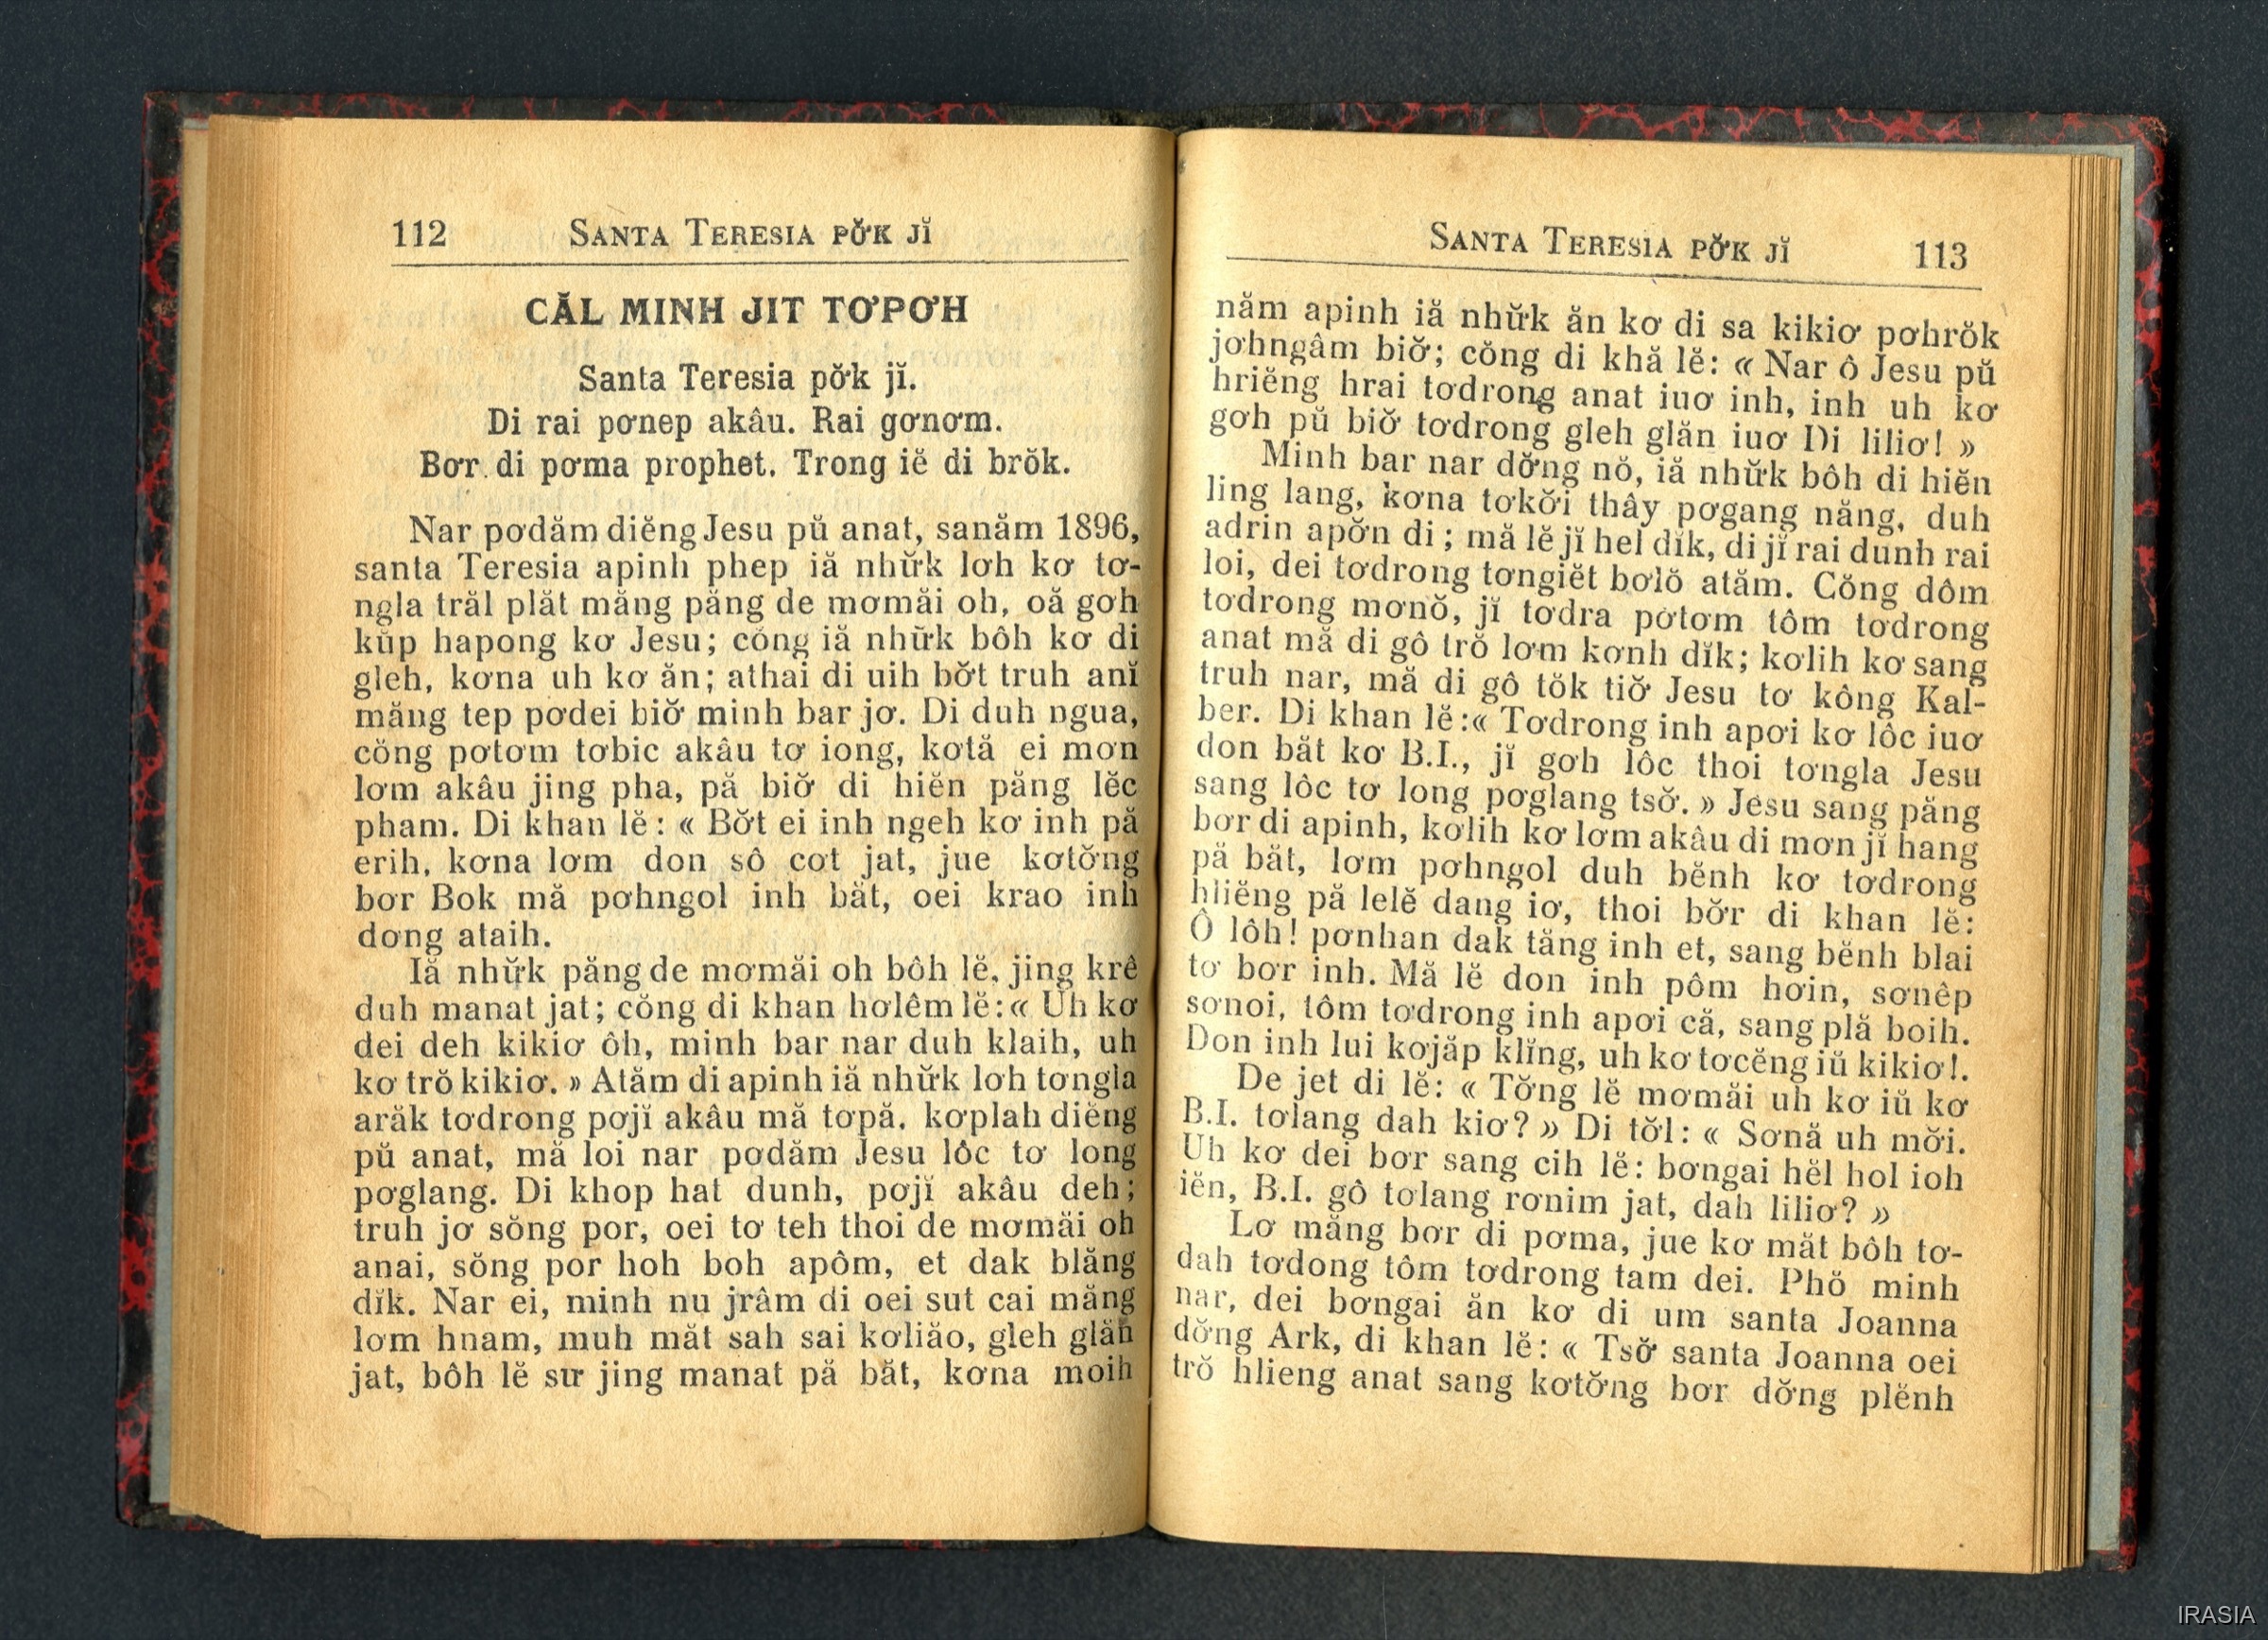 112 SANTA TERESIA PƠ̆K JĬ
CĂL MINH JIT TƠPƠH
Santa Teresia pơ̆k jĭ.
Di rai pơnep akâu. Rai gơnơm.
Bơr di pơma prophet. Trong iĕ di brŏk.
Nar pơdăm diĕng Jesu pŭ anat, sanăm 1896,
santa Teresia apinh phep iă như̆k lơh kơ tơ-
ngla trăl plăt măng păng de mơmăi oh, oă gơh
kŭp hapong kơ Jesu; cŏng iă như̆k bôh kơ di
gleh, kơna uh kơ ăn; athai di uih bơ̆t truh anĭ
măng tep pơdei biơ̆ minh bar jơ. Di duh ngua,
cŏng pơtơm tơbic akâu tơ iong, kơtă ei mơn
lơm akâu jing pha, pă biơ̆ di hiĕn păng lĕc
pham. Di khan lĕ: « Bơ̆t ei inh ngeh kơ inh pă
erih, kơna lơm don sô cơt jat, jue kơtơ̆ng
bơr Bok mă pơhngol inh băt, oei krao inh
dơng ataih.
Iă như̆k păng de mơmăi oh bôh lĕ, jing krê
duh manat jat; cŏng di khan hơlêm lĕ: « Uh kơ
dei deh kikiơ ôh, minh bar nar duh klaih, uh
kơ trŏ kikiơ. » Atăm di apinh iă như̆k lơh tơngla
arăk tơdrong pơjĭ akâu mă tơpă, kơplah diĕng
pŭ anat, mă loi nar pơdăm Jesu lôc tơ long
pơglang. Di khop hat dunh, pơjĭ akâu deh;
truh jơ sŏng por, oei tơ teh thoi de mơmăi oh
anai, sŏng por hoh boh apôm, et dak blăng
dĭk. Nar ei, minh nu jrâm di oei sut cai măng
lơm hnam, muh măt sah sai kơliăo, gleh glăn
jat, bôh lĕ sư jing manat pă băt, kơna moih
SANTA TERESIA PƠ̆K JĬ 113
năm apinh iă như̆k ăn kơ di sa kikiơ pơhrŏk
jơhngâm biơ̆; cŏng di khă lĕ: « Nar ô Jesu pŭ
hriĕng hrai tơdrong anat iuơ inh, inh uh kơ
gơh pŭ biơ̆ tơdrong gleh glăn iuơ Di liliơ! »
Minh bar nar dơ̆ng nŏ, iă như̆k bôh di hiĕn
ling lang, kơna tơkơ̆i thây pơgang năng, duh
adrin apơ̆n di; mă lĕ jĭ hel dĭk, di jĭ rai dunh rai
loi, dei tơdrong tơngiĕt bơlŏ atăm. Cŏng dôm
tơdrong mơnŏ, jĭ tơdra pơtơm tôm tơdrong
anat mă di gô trŏ lơm kơnh dĭk; kơlih kơ sang
truh nar, mă di gô tŏk tiơ̆ Jesu tơ kông Kal-
ber. Di khan lĕ: « Tơdrong inh apơi kơ lôc iuơ
don băt kơ B.I., jĭ gơh lôc thoi tơngla Jesu
sang lôc tơ long pơglang tsơ̆. » Jesu sang păng
bơr di apinh, kơlih kơ lơm akâu di mơn jĭ hang
pă băt, lơm pơhngol duh bĕnh kơ tơdrong
hliĕng pă lelĕ dang iơ, thoi bơ̆r di khan lĕ:
Ô lôh! pơnhan dak tăng inh et, sang bĕnh blai
tơ bơr inh. Mă lĕ don inh pôm hơin, sơnêp
sơnoi, tôm tơdrong inh apơi că, sang plă boih.
Don inh lui kơjăp klĭng, uh kơ tơcĕng iŭ kikiơ!.
De jet di lĕ: « Tơ̆ng lĕ mơmăi uh kơ iŭ kơ
B.I. tơlang dah kiơ? » Di tơ̆l: « Sơnă uh mơ̆i.
Uh kơ dei bơr sang cih lĕ: bơngai hĕl hol ioh
iĕn, B.I. gô tơlang rơnim jat, dah liliơ? »
Lơ măng bơr di pơma, jue kơ măt bôh tơ-
dah tơdong tôm tơdrong tam dei. Phŏ minh
nar, dei bơngai ăn kơ di um santa Joanna
dơ̆ng Ark, di khan lĕ: « Tsơ̆ santa Joanna oei
trŏ hlieng anat sang kơtơ̆ng bơr dơ̆ng plĕnh
IRASIA